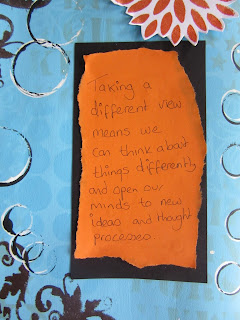 Taking a
different view
means we
can think about
things differently
and open our
minds to new
ideas and thought
processes.